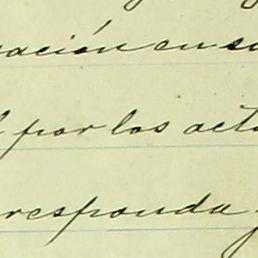 ación en su
por los act
responda